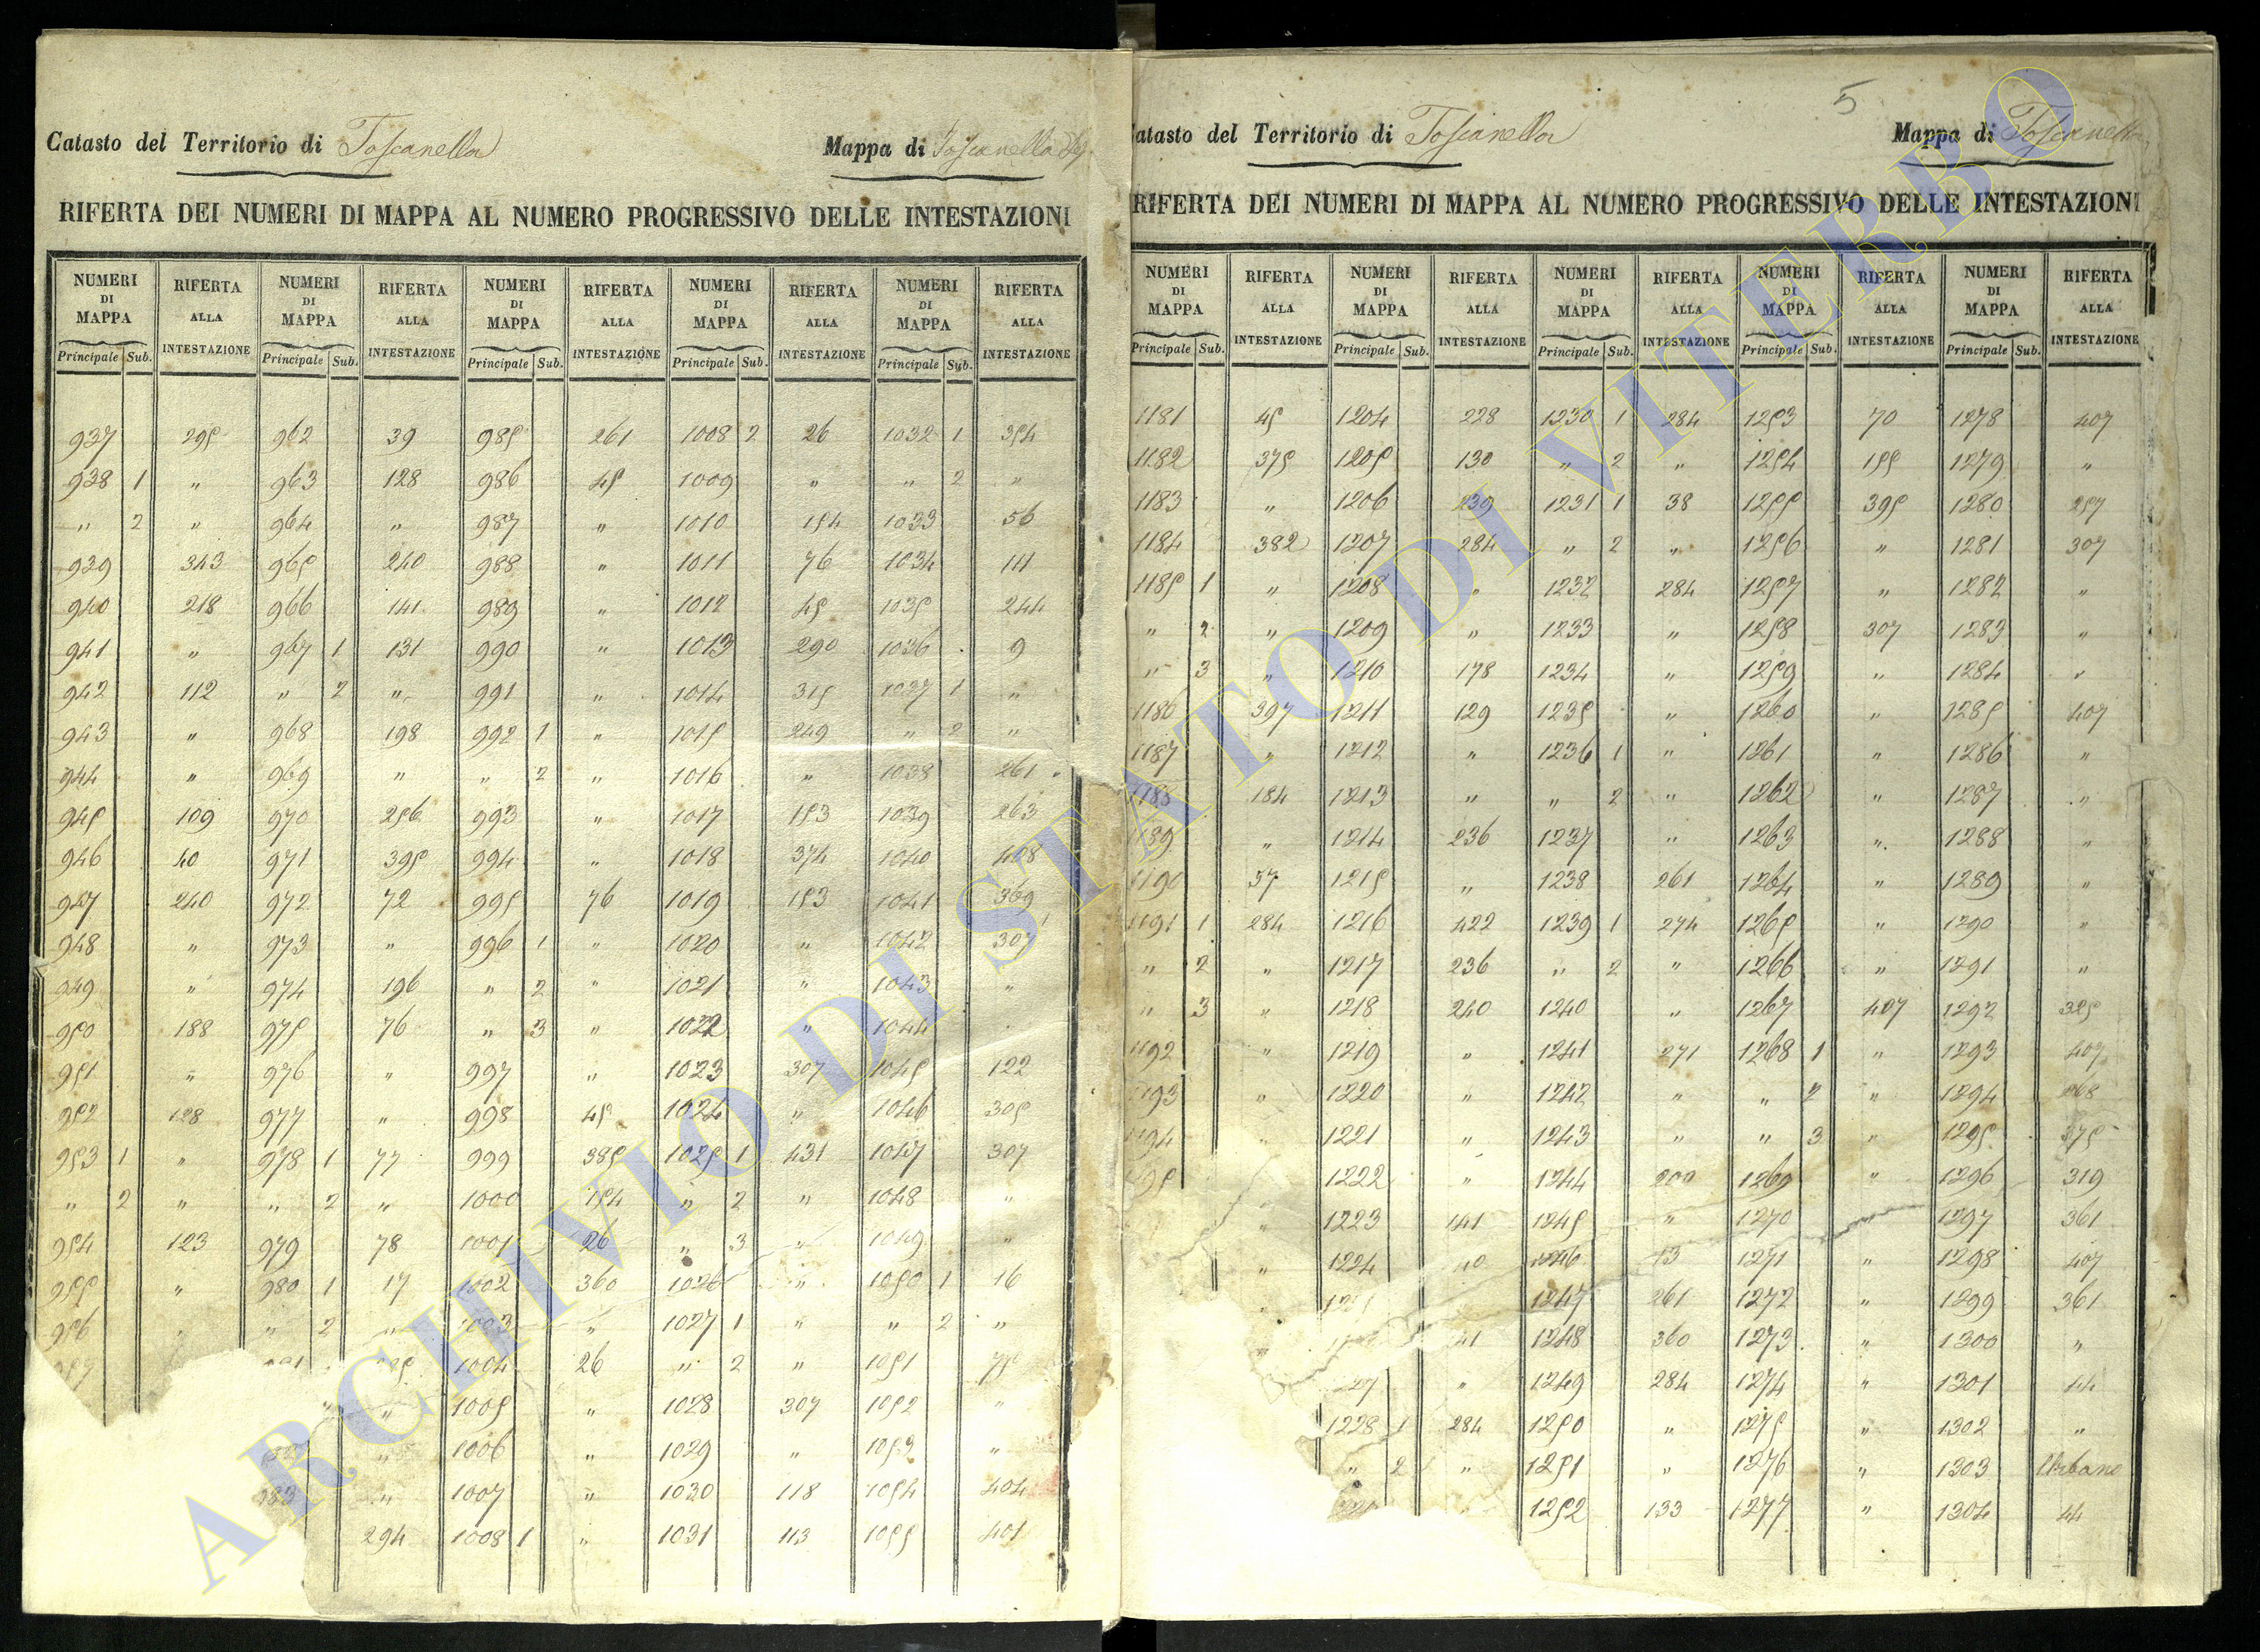 Catasto del Territorio di Toscanella Mappa di Toscanella
RIFERTA DEI NUMERI DI MAPPA AL NUMERO PROGRESSIVO DELLE INTESTAZIONI
NUMERI DI MAPPA RIFERTA ALLA INTESTAZIONE NUMERI DI MAPPA RIFERTA ALLA INTESTAZIONE NUMERI DI MAPPA RIFERTA ALLA INTESTAZIONE NUMERI DI MAPPA RIFERTA ALLA INTESTAZIONE NUMERI DI MAPPA RIFERTA ALLA INTESTAZIONE
Principale Sub. Principale Sub. Principale Sub. Principale Sub. Principale Sub.
937 295 962 39 985 261 1008 2 26 1032 1 354
938 1 " 963 128 986 45 1009 " " 2 "
" 2 " 964 " 987 " 1010 154 1033 56
939 343 965 240 988 " 1011 76 1034 111
940 218 966 141 989 " 1012 45 1035 244
941 " 967 1 131 990 " 1013 290 1036 9
942 112 " 2 " 991 " 1014 315 1037 1 "
943 " 968 198 992 1 " 1015 249 " 2 "
944 " 969 " " 2 " 1016 " 1038 261
945 109 970 256 993 " 1017 153 1039 263
946 40 971 395 994 " 1018 374 1040 408
947 240 972 72 995 76 1019 153 1041 369
948 " 973 " 996 1 " 1020 " 1042 307
949 " 974 196 " 2 " 1021 " 1043 "
950 188 975 76 " 3 " 1022 " 1044
951 " 976 " 997 " 1023 307 1045 122
952 128 977 " 998 45 1024 " 1046 305
953 1 " 978 1 77 999 385 1025 1 431 1047 307
" 2 " " 2 " 1000 154 " 2 " 1048 "
954 123 979 78 1001 26 " 3 " 1049 "
955 " 980 1 17 1002 360 1026 " 1050 1 16
956 " " 2 " 1003 " 1027 1 " " 2 "
1004 26 " 2 " 1051 75
" " 1005 " 1028 307 1052 "
" 1006 " 1029 " 1053 "
983 " 1007 " 1030 118 1054 404
294 1008 1 " 1031 113 1055 401
5
Catasto del Territorio di Toscanella Mappa di Toscanella
RIFERTA DEI NUMERI DI MAPPA AL NUMERO PROGRESSIVO DELLE INTESTAZIONI
NUMERI DI MAPPA RIFERTA ALLA INTESTAZIONE NUMERI DI MAPPA RIFERTA ALLA INTESTAZIONE NUMERI DI MAPPA RIFERTA ALLA INTESTAZIONE NUMERI DI MAPPA RIFERTA ALLA INTESTAZIONE NUMERI DI MAPPA RIFERTA ALLA INTESTAZIONE
Principale Sub. Principale Sub. Principale Sub. Principale Sub. Principale Sub.
1181 45 1204 228 1230 1 284 1253 70 1278 407
1182 375 1205 130 " 2 " 1254 155 1279 "
1183 " 1206 239 1231 1 38 1255 395 1280 257
1184 382 1207 284 " 2 " 1256 " 1281 307
1185 1 " 1208 " 1232 284 1257 " 1282 "
" 2 " 1209 " 1233 " 1258 307 1283 "
" 3 " 1210 178 1234 " 1259 " 1284 "
1186 397 1211 129 1235 " 1260 " 1285 407
1187 " 1212 " 1236 1 " 1261 " 1286 "
1188 184 1213 " " 2 " 1262 " 1287 "
1189 " 1214 236 1237 " 1263 " 1288 "
1190 57 1215 " 1238 261 1264 " 1289 "
1191 1 284 1216 422 1239 1 274 1265 " 1290 "
" 2 " 1217 236 " 2 " 1266 " 1291 "
" 3 " 1218 240 1240 " 1267 407 1292 325
1192 " 1219 " 1241 271 1268 1 " 1293 407
1193 " 1220 " 1242 " " 2 " 1294 268
1194 " 1221 " 1243 " " 3 " 1295 375
1222 " 1244 200 1269 " 1296 319
" 1223 141 1245 " 1270 1297 361
" 1224 40 1246 13 1271 " 1298 407
" 1247 261 1272 " 1299 361
" 41 1248 360 1273 " 1300 "
" 1249 284 1274 " 1301 44
1228 1 284 1250 " 1275 " 1302 "
" 2 " 1251 " 1276 " 1303 Urbano
1252 133 1277 " 1304 44
ARCHIVIO DI STATO DI VITERBO